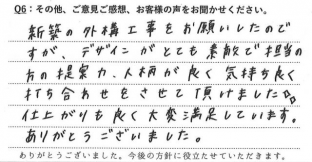 Q6：その他、ご意見ご感想、お客様の声をお聞かせください。
新築の外構工事をお願いしたので
すが、デザインがとても素敵で担当の
方の提案力、人柄が良く気持ち良く
打ち合わせをさせて頂けました。
仕上がりも良く大変満足しています。
ありがとうございました。
ありがとうございました。今後の方針に役立たせていただきます。